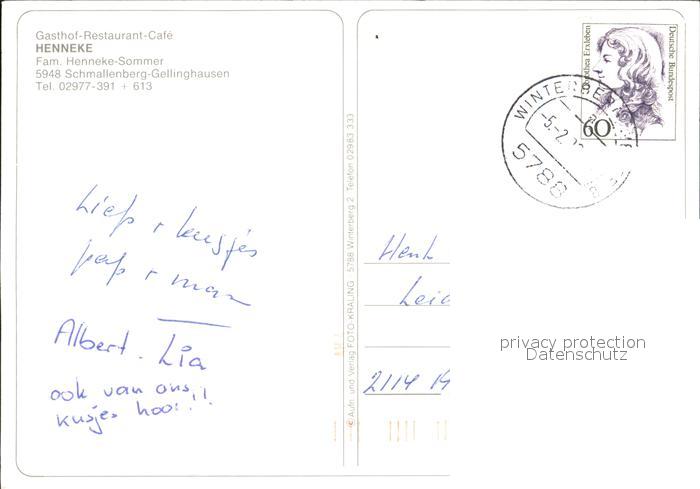 Gasthof-Restaurant-Café
HENNEKE
Fam. Henneke-Sommer
5948 Schmallenberg-Gellinghausen
Tel. 02977-391 + 613
Liefs + kusjes
paps + mam
Albert. Lia
ook van ons!!
kusjes hoor!!
© Aufn. und Verlag FOTO-KRALING 5788 Winterberg 2 Telefon 02983 333
Dorothea Erxleben
Deutsche Bundespost
60
WINTERBERG
-5.-2.
5788
Henk
Leid
2114
privacy protection
Datenschutz